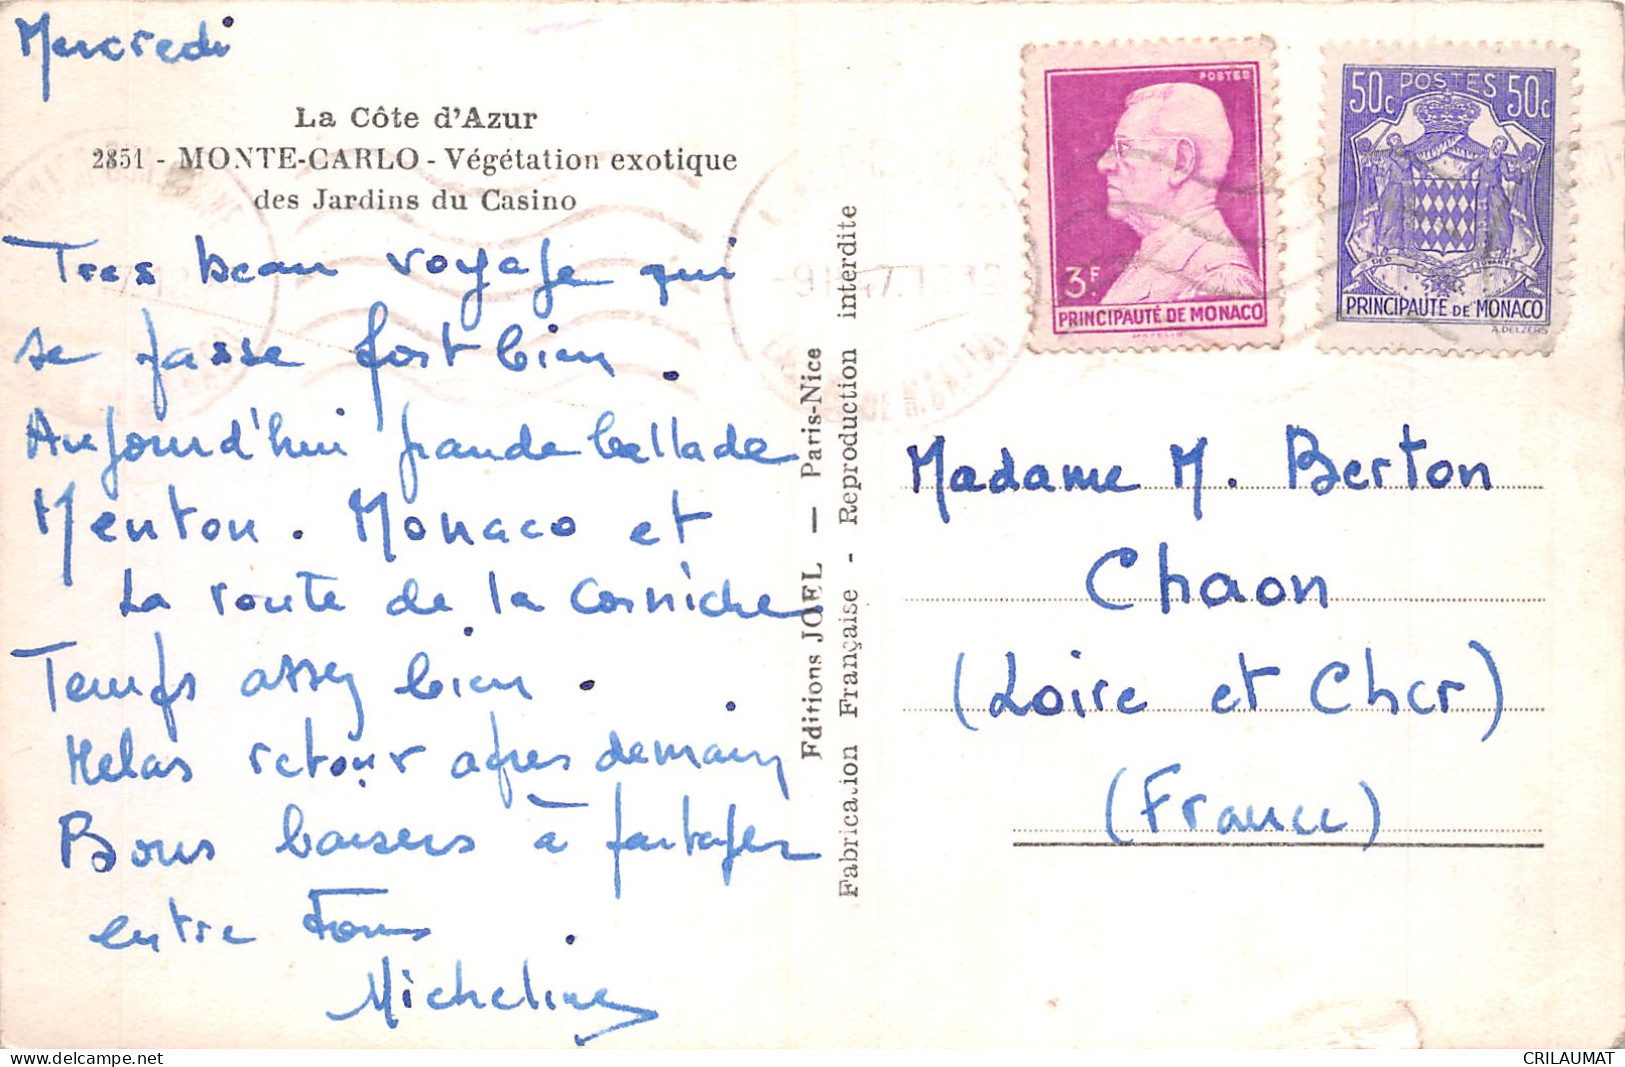 Mercredi
La Côte d'Azur
2851 - MONTE-CARLO - Végétation exotique
des Jardins du Casino
Tres beau voyage qui
se passe fort bien.
Aujourd'hui grande ballade
Menton. Monaco et
La route de la Corniche
Temps assez bien.
Helas retour apres demain
Bons baisers à partager
entre Tous
Micheline
Editions JOEL — Paris-Nice
Fabrication Française - Reproduction interdite
POSTES
3F.
PRINCIPAUTÉ DE MONACO
50c POSTES 50c
DEO JUVANTE
PRINCIPAUTÉ DE MONACO
A. DELZERS
Madame M. Berton
Chaon
(Loire et Cher)
(France)
CRILAUMAT
https://www.delcampe.net